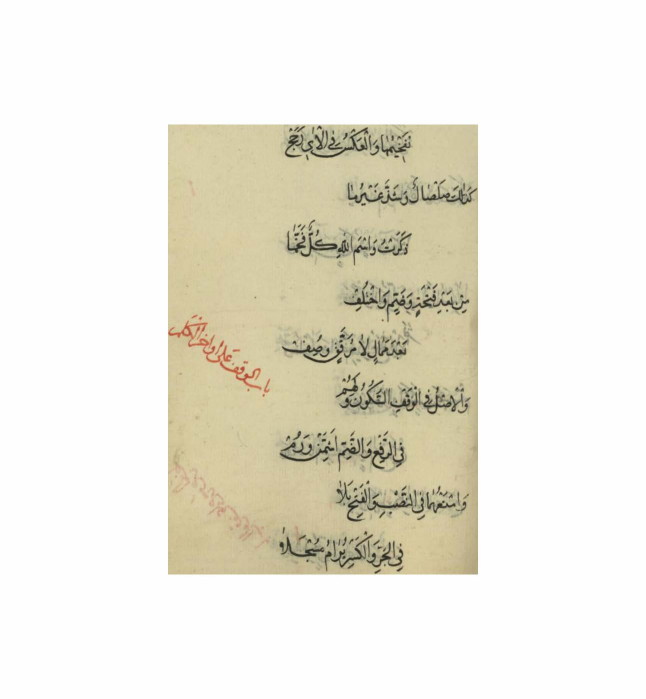 تَفْخِيمُهَا وَالْعَكْسُ فِي الْآيِ رَجَحْ
كَذَاكَ صَلْصَالٌ وَشَذَّ غَيْرُ مَا
ذَكَرْتُ وَاسْمَ اللهِ كُلٌّ فَخَّمَا
مِنْ بَعْدِ فَتْحَةٍ وَضَمٍّ وَاخْتُلِفْ
بَعْدَ مُمَالٍ لَا مُرَقَّقٍ وُصِفْ
باب الوقف على اواخر الكلم
وَالْاَصْلُ فِي الْوَقْفِ السُّكُونُ وَلَهُمْ
فِي الرَّفْعِ وَالضَّمِّ اشْمِمَنْ وَرُمْ
وَامْنَعْهُمَا فِي النَّصْبِ وَالْفَتْحِ بَلَا
فِي الْجَرِّ وَالْكَسْرِ يُرَامُ مُسْجَلَا